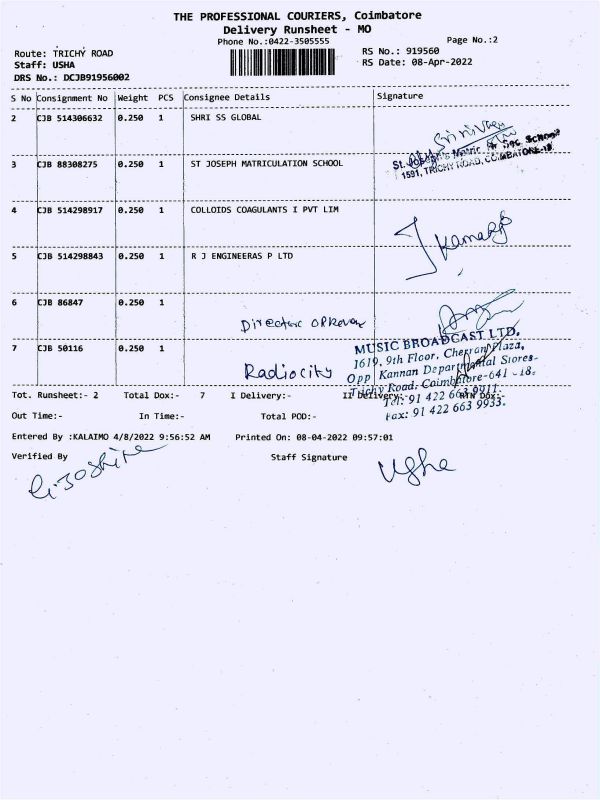 THE PROFESSIONAL COURIERS, Coimbatore
Delivery Runsheet - MO
Phone No.:0422-3505555
Page No.:2
Route: TRICHY ROAD
RS No.: 919560
Staff: USHA
RS Date: 08-Apr-2022
DRS No.: DCJB91956002
S No Consignment No Weight PCS Consignee Details Signature
2 CJB 514306632 0.250 1 SHRI SS GLOBAL
3 CJB 88308275 0.250 1 ST JOSEPH MATRICULATION SCHOOL
St. Joseph's Matric Hr Sec School
1591, TRICHY ROAD, COIMBATORE-18
4 CJB 514298917 0.250 1 COLLOIDS COAGULANTS I PVT LIM
Kamaraj
5 CJB 514298843 0.250 1 R J ENGINEERAS P LTD
6 CJB 86847 0.250 1
Director
7 CJB 50116 0.250 1
Radiocity
MUSIC BROADCAST LTD.
1619, 9th Floor, Cherran Plaza,
Opp Kannan Departmental Stores-
Trichy Road, Coimbatore-641 018.
Tel: 91 422 663 9911.
Fax: 91 422 663 9933.
Tot. Runsheet:- 2 Total Dox:- 7 I Delivery:- II Delivery:- RTN Dox:-
Out Time:- In Time:- Total POD:-
Entered By :KALAIMO 4/8/2022 9:56:52 AM Printed On: 08-04-2022 09:57:01
Verified By Staff Signature
Usha